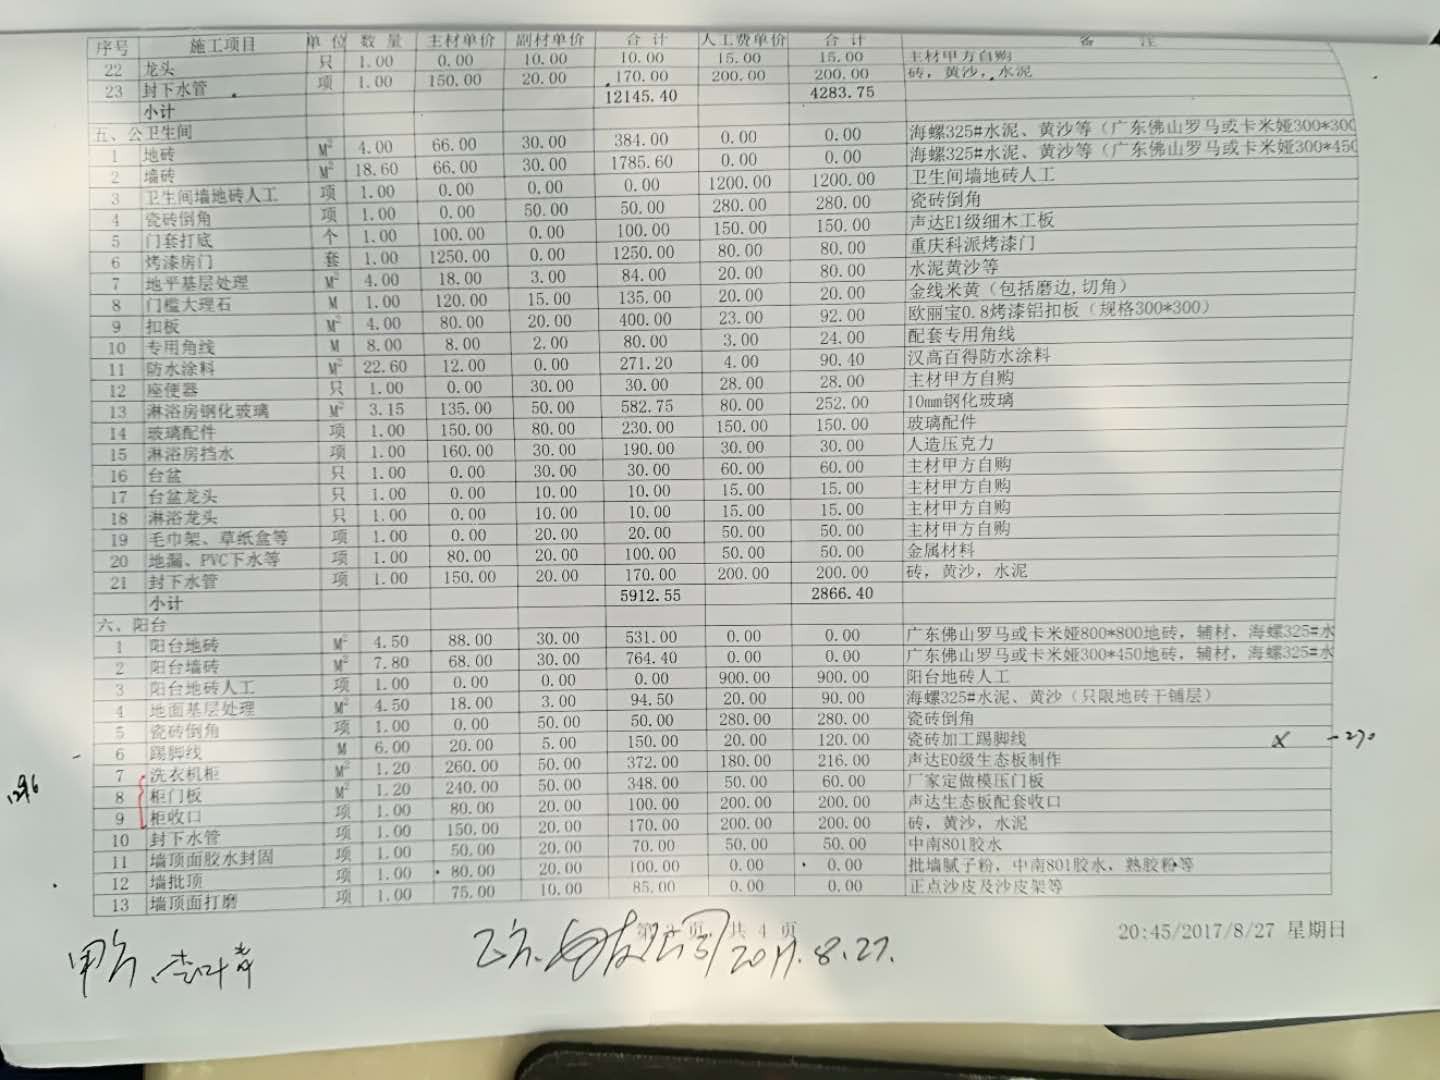 序号 施工项目 单位 数量 主材单价 副材单价 合计 人工费单价 合计 备注
22 龙头 只 1.00 0.00 10.00 10.00 15.00 15.00 主材甲方自购
23 封下水管 项 1.00 150.00 20.00 170.00 200.00 200.00 砖，黄沙，水泥
小计 12145.40 4283.75
五、公卫生间
1 地砖 M² 4.00 66.00 30.00 384.00 0.00 0.00 海螺325#水泥、黄沙等（广东佛山罗马或卡米娅300*300
2 墙砖 M² 18.60 66.00 30.00 1785.60 0.00 0.00 海螺325#水泥、黄沙等（广东佛山罗马或卡米娅300*450
3 卫生间墙地砖人工 项 1.00 0.00 0.00 0.00 1200.00 1200.00 卫生间墙地砖人工
4 瓷砖倒角 项 1.00 0.00 50.00 50.00 280.00 280.00 瓷砖倒角
5 门套打底 个 1.00 100.00 0.00 100.00 150.00 150.00 声达E1级细木工板
6 烤漆房门 套 1.00 1250.00 0.00 1250.00 80.00 80.00 重庆科派烤漆门
7 地平基层处理 M² 4.00 18.00 3.00 84.00 20.00 80.00 水泥黄沙等
8 门槛大理石 M 1.00 120.00 15.00 135.00 20.00 20.00 金线米黄（包括磨边,切角）
9 扣板 M² 4.00 80.00 20.00 400.00 23.00 92.00 欧丽宝0.8烤漆铝扣板（规格300*300）
10 专用角线 M 8.00 8.00 2.00 80.00 3.00 24.00 配套专用角线
11 防水涂料 M² 22.60 12.00 0.00 271.20 4.00 90.40 汉高百得防水涂料
12 座便器 只 1.00 0.00 30.00 30.00 28.00 28.00 主材甲方自购
13 淋浴房钢化玻璃 M² 3.15 135.00 50.00 582.75 80.00 252.00 10mm钢化玻璃
14 玻璃配件 项 1.00 150.00 80.00 230.00 150.00 150.00 玻璃配件
15 淋浴房挡水 项 1.00 160.00 30.00 190.00 30.00 30.00 人造压克力
16 台盆 只 1.00 0.00 30.00 30.00 60.00 60.00 主材甲方自购
17 台盆龙头 只 1.00 0.00 10.00 10.00 15.00 15.00 主材甲方自购
18 淋浴龙头 只 1.00 0.00 10.00 10.00 15.00 15.00 主材甲方自购
19 毛巾架、草纸盒等 项 1.00 0.00 20.00 20.00 50.00 50.00 主材甲方自购
20 地漏、PVC下水等 项 1.00 80.00 20.00 100.00 50.00 50.00 金属材料
21 封下水管 项 1.00 150.00 20.00 170.00 200.00 200.00 砖，黄沙，水泥
小计 5912.55 2866.40
六、阳台
1 阳台地砖 M² 4.50 88.00 30.00 531.00 0.00 0.00 广东佛山罗马或卡米娅800*800地砖，辅材，海螺325#水
2 阳台墙砖 M² 7.80 68.00 30.00 764.40 0.00 0.00 广东佛山罗马或卡米娅300*450地砖，辅材，海螺325#水
3 阳台地砖人工 项 1.00 0.00 0.00 0.00 900.00 900.00 阳台地砖人工
4 地面基层处理 M² 4.50 18.00 3.00 94.50 20.00 90.00 海螺325#水泥、黄沙（只限地砖干铺层）
5 瓷砖倒角 项 1.00 0.00 50.00 50.00 280.00 280.00 瓷砖倒角
6 踢脚线 M 6.00 20.00 5.00 150.00 20.00 120.00 瓷砖加工踢脚线 x -270
7 洗衣机柜 M² 1.20 260.00 50.00 372.00 180.00 216.00 声达E0级生态板制作
1296 8 柜门板 M² 1.20 240.00 50.00 348.00 50.00 60.00 厂家定做模压门板
9 柜收口 项 1.00 80.00 20.00 100.00 200.00 200.00 声达生态板配套收口
10 封下水管 项 1.00 150.00 20.00 170.00 200.00 200.00 砖，黄沙，水泥
11 墙顶面胶水封固 项 1.00 50.00 20.00 70.00 50.00 50.00 中南801胶水
12 墙批顶 项 1.00 80.00 20.00 100.00 0.00 0.00 批墙腻子粉，中南801胶水，熟胶粉等
13 墙顶面打磨 项 1.00 75.00 10.00 85.00 0.00 0.00 正点沙皮及沙皮架等
第 页 共 4 页 20:45/2017/8/27 星期日
甲方 乙方 2017.8.27.